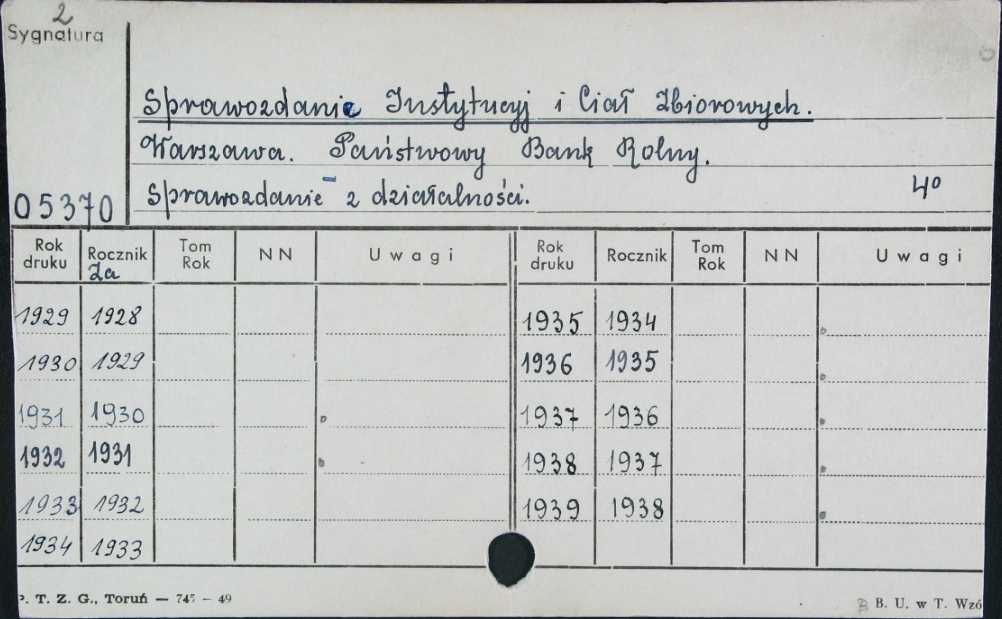 2
Sygnatura
Sprawozdanie Instytucyj i Ciał Zbiorowych.
Warszawa. Państwowy Bank Rolny.
Sprawozdanie z działalności. 4º
05370
Rok druku Rocznik Tom Rok NN Uwagi Rok druku Rocznik Tom Rok NN Uwagi
Za
1929 1928 1935 1934
1930 1929 1936 1935
1931 1930 1937 1936
1932 1931 1938 1937
1933 1932 1939 1938
1934 1933
P. T. Z. G., Toruń — 745 — 49 B. U. w T. Wzó